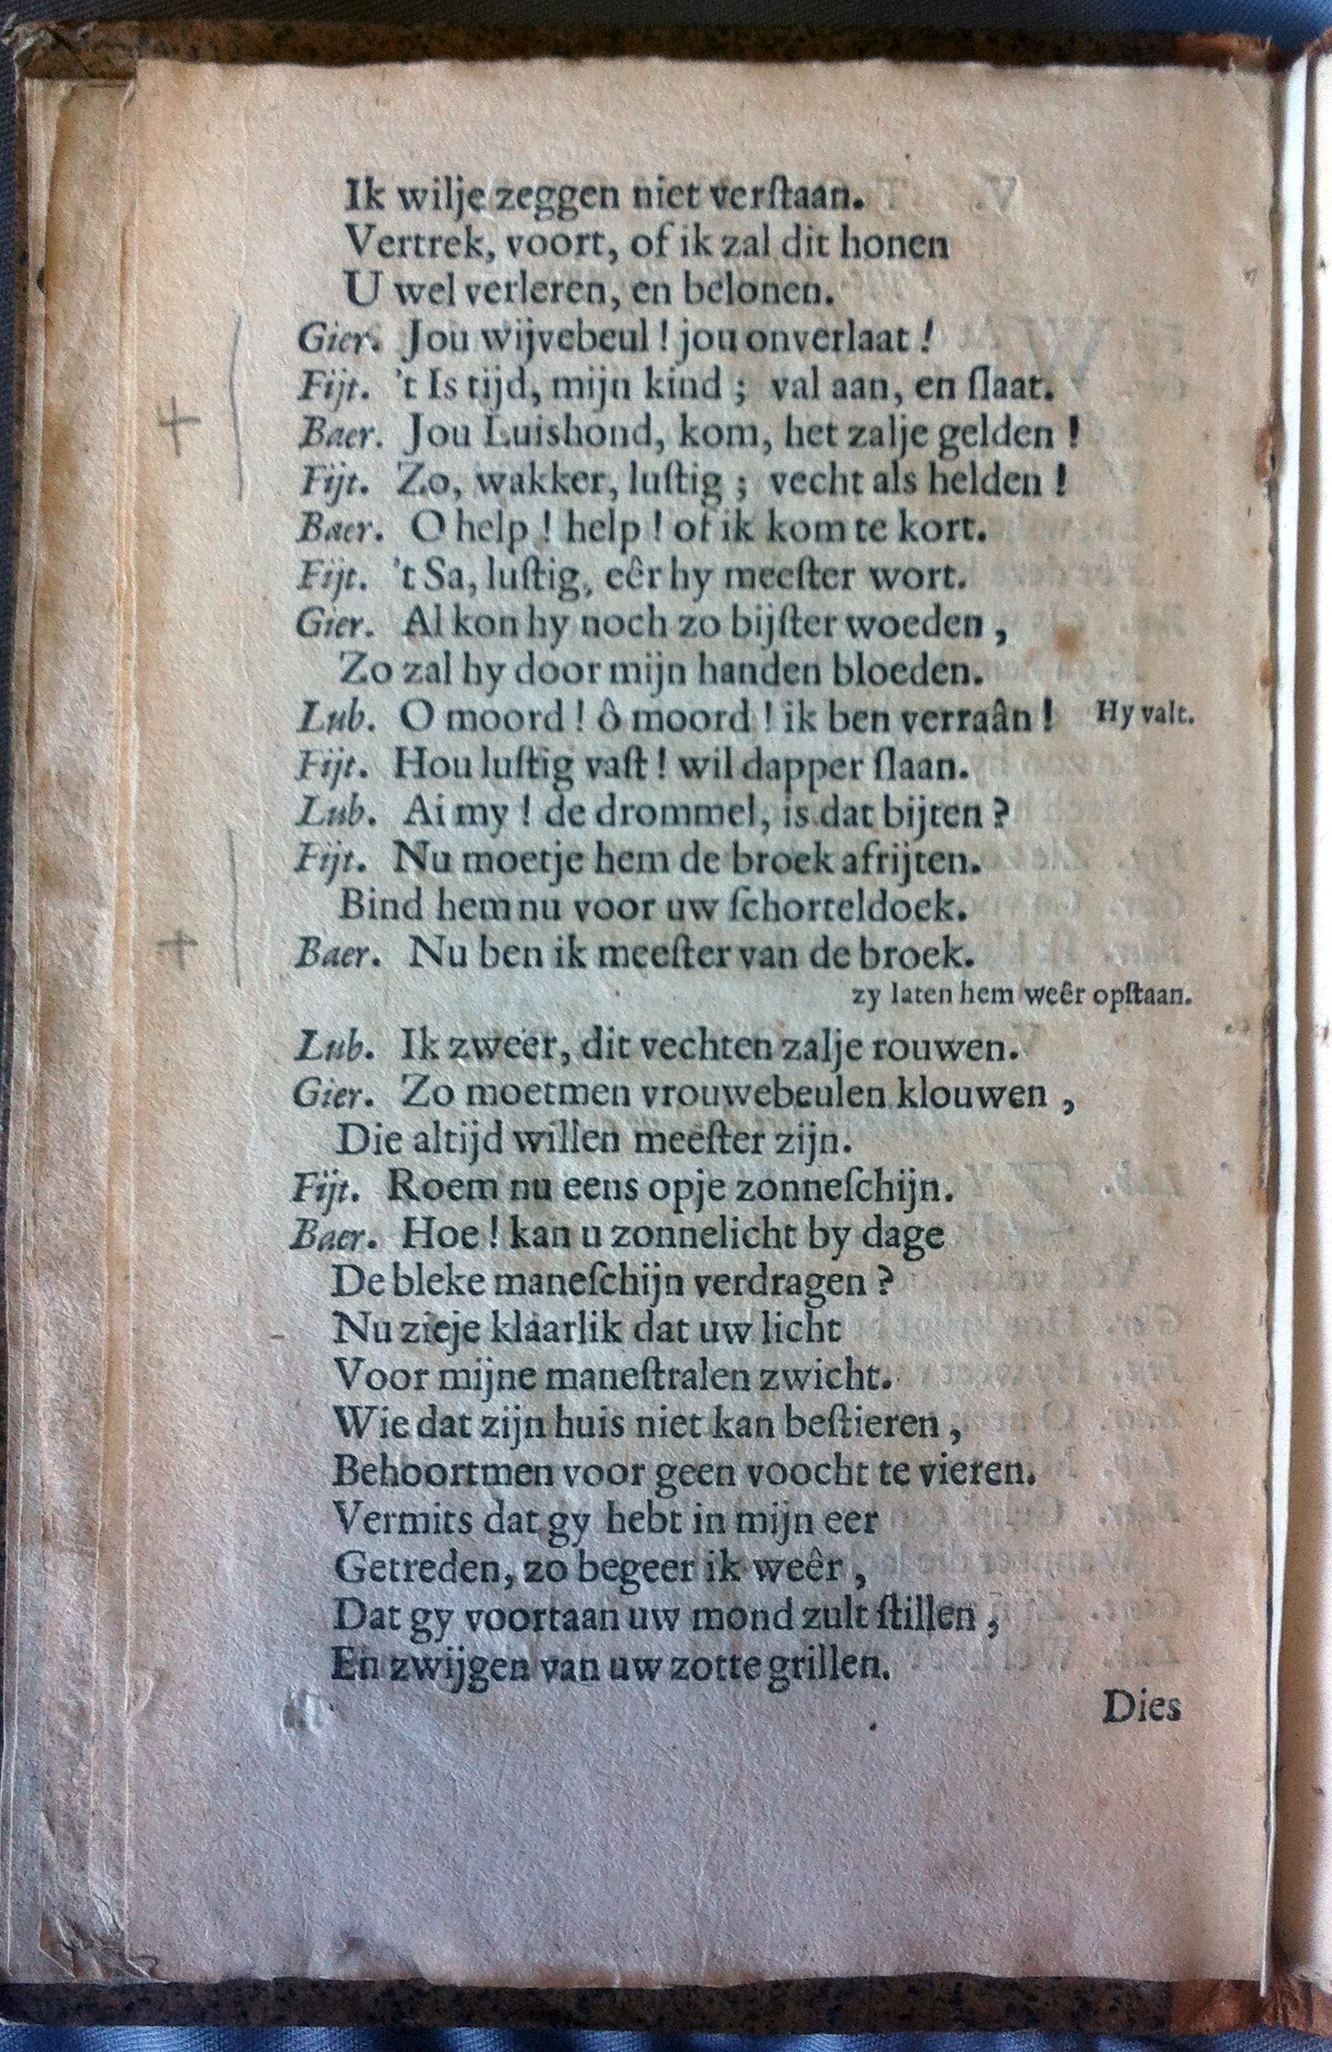 Ik wilje zeggen niet verſtaan.
Vertrek, voort, of ik zal dit honen
U wel verleren, en belonen.
Gier. Jou wijvebeul ! jou onverlaat !
Fijt. 't Is tijd, mijn kind ; val aan, en ſlaat.
Baer. Jou Luishond, kom, het zalje gelden !
Fijt. Zo, wakker, luſtig ; vecht als helden !
Baer. O help ! help ! of ik kom te kort.
Fijt. 't Sa, luſtig, eêr hy meeſter wort.
Gier. Al kon hy noch zo bijſter woeden ,
Zo zal hy door mijn handen bloeden.
Lub. O moord ! ô moord ! ik ben verraân ! Hy valt.
Fijt. Hou luſtig vaſt ! wil dapper ſlaan.
Lub. Ai my ! de drommel, is dat bijten ?
Fijt. Nu moetje hem de broek afrijten.
Bind hem nu voor uw ſchorteldoek.
Baer. Nu ben ik meeſter van de broek.
zy laten hem weêr opſtaan.
Lub. Ik zweer, dit vechten zalje rouwen.
Gier. Zo moetmen vrouwebeulen klouwen ,
Die altijd willen meeſter zijn.
Fijt. Roem nu eens opje zonneſchijn.
Baer. Hoe ! kan u zonnelicht by dage
De bleke maneſchijn verdragen ?
Nu zieje klaarlik dat uw licht
Voor mijne maneſtralen zwicht.
Wie dat zijn huis niet kan beſtieren ,
Behoortmen voor geen voocht te vieren.
Vermits dat gy hebt in mijn eer
Getreden, zo begeer ik weêr ,
Dat gy voortaan uw mond zult ſtillen ,
En zwijgen van uw zotte grillen.
Dies